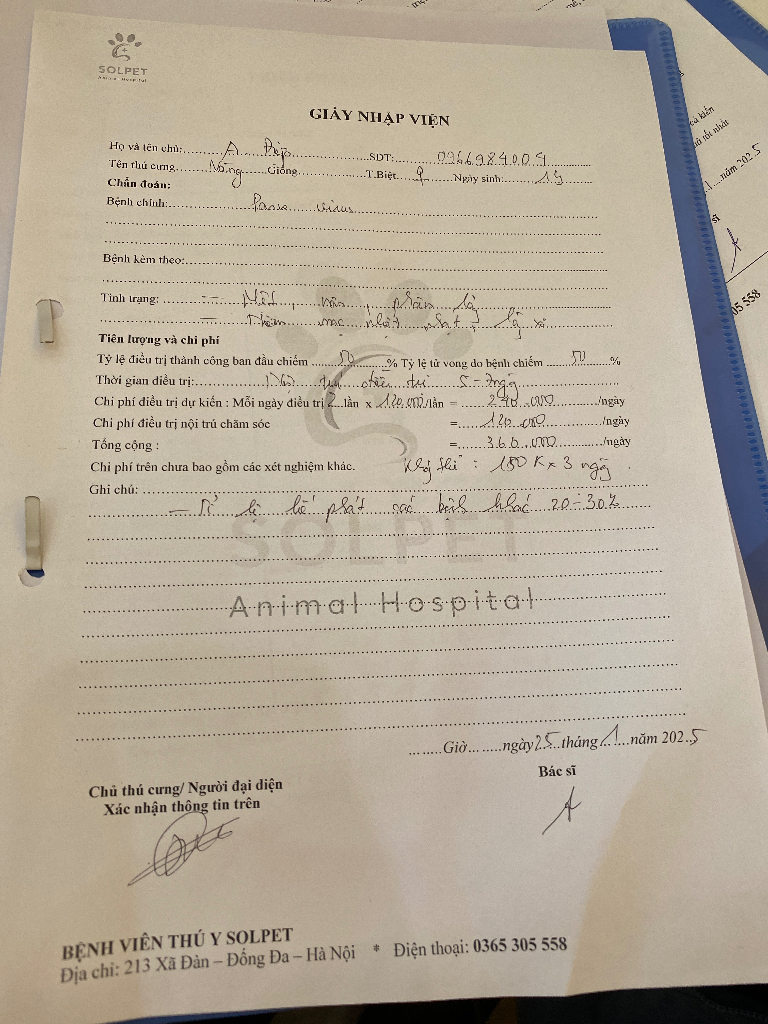 SOLPET
Animal Hospital
GIẤY NHẬP VIỆN
Họ và tên chủ: A SĐT: 0966984009
Tên thú cưng Giống T.Biệt ♀ Ngày sinh: 1
Chẩn đoán:
Bệnh chính: Parvo virus
Bệnh kèm theo:
Tình trạng: - Mệt, nôn, phân lỏng
- Thêm mạc nhợt nhạt,
Tiên lượng và chi phí
Tỷ lệ điều trị thành công ban đầu chiếm 50 % Tỷ lệ tử vong do bệnh chiếm 50 %
Thời gian điều trị: điều trị 5-7 ngày
Chi phí điều trị dự kiến : Mỗi ngày điều trị 2 lần x 120.000/lần = 240.000 /ngày
Chi phí điều trị nội trú chăm sóc = 120.000 /ngày
Tổng cộng : = 360.000 /ngày
Chi phí trên chưa bao gồm các xét nghiệm khác. : 150K x 3 ngày.
Ghi chú:
- Tỉ lệ kế phát các bệnh khác 20-30%
SOLPET
Animal Hospital
Giờ ngày 25 tháng 1 năm 2025
Chủ thú cưng/ Người đại diện
Xác nhận thông tin trên
Bác sĩ
BỆNH VIÊN THÚ Y SOLPET
Địa chỉ: 213 Xã Đàn – Đống Đa – Hà Nội * Điện thoại: 0365 305 558
và kiến
tốt nhất
1 năm 2025
sĩ
05 558